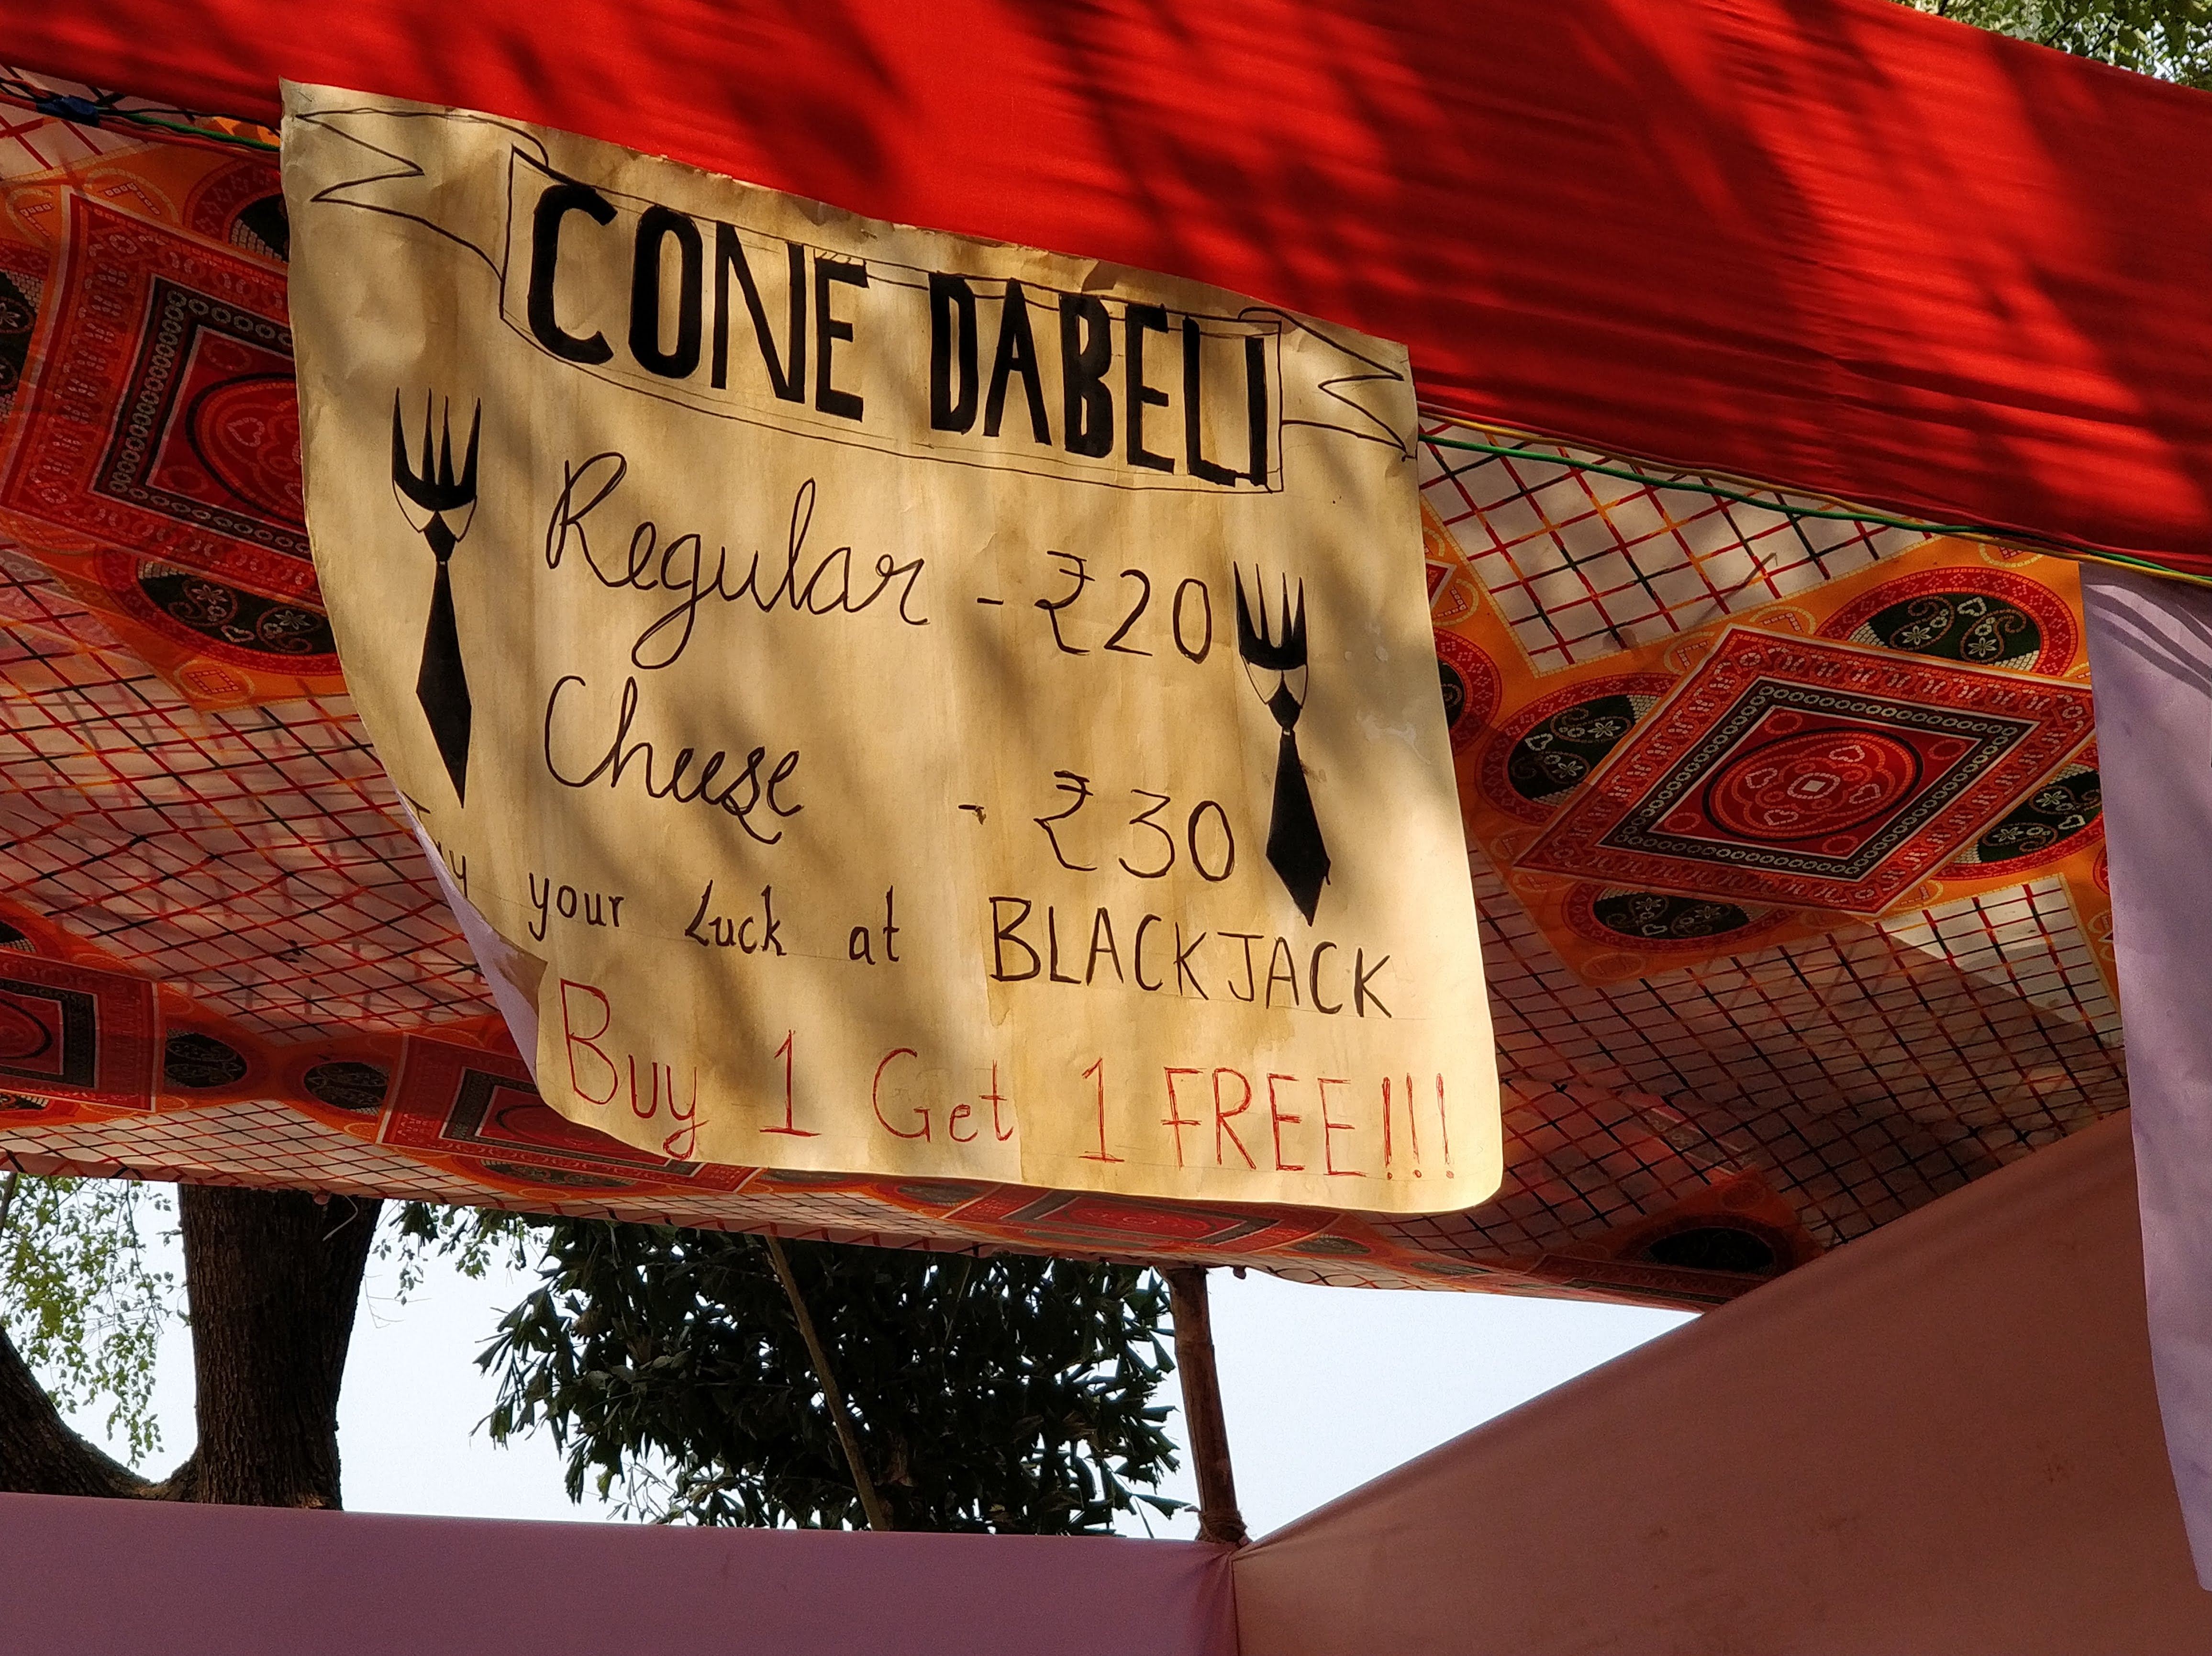 CONE DABELI
Regular - ₹20
Cheese - ₹30
Try your Luck at BLACKJACK
Buy 1 Get 1 FREE!!!